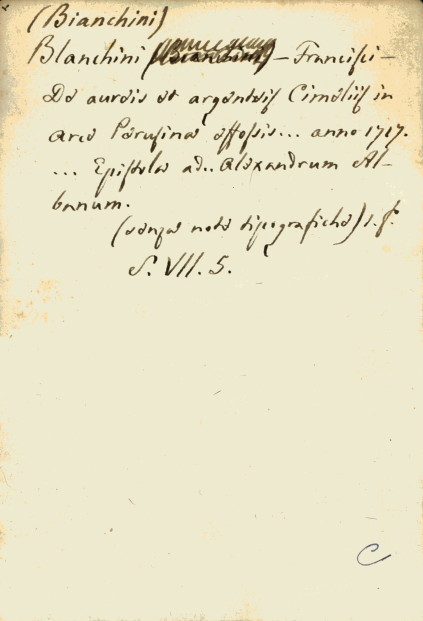 (Bianchini)
Blanchini (Bianchini) - Francisci -
De aureis et argenteis Cimeliis in
arce Perusina effossis... anno 1717.
... Epistola ad.. Alexandrum Al-
banum.
(senza note tipografiche) s. f.
S. VII. 5.
C